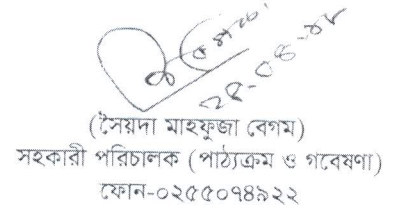 (সৈয়দা মাহফুজা বেগম)
সহকারী পরিচালক (পাঠ্যক্রম ও গবেষণা)
ফোন-০২৫৫০৭৪৯২২